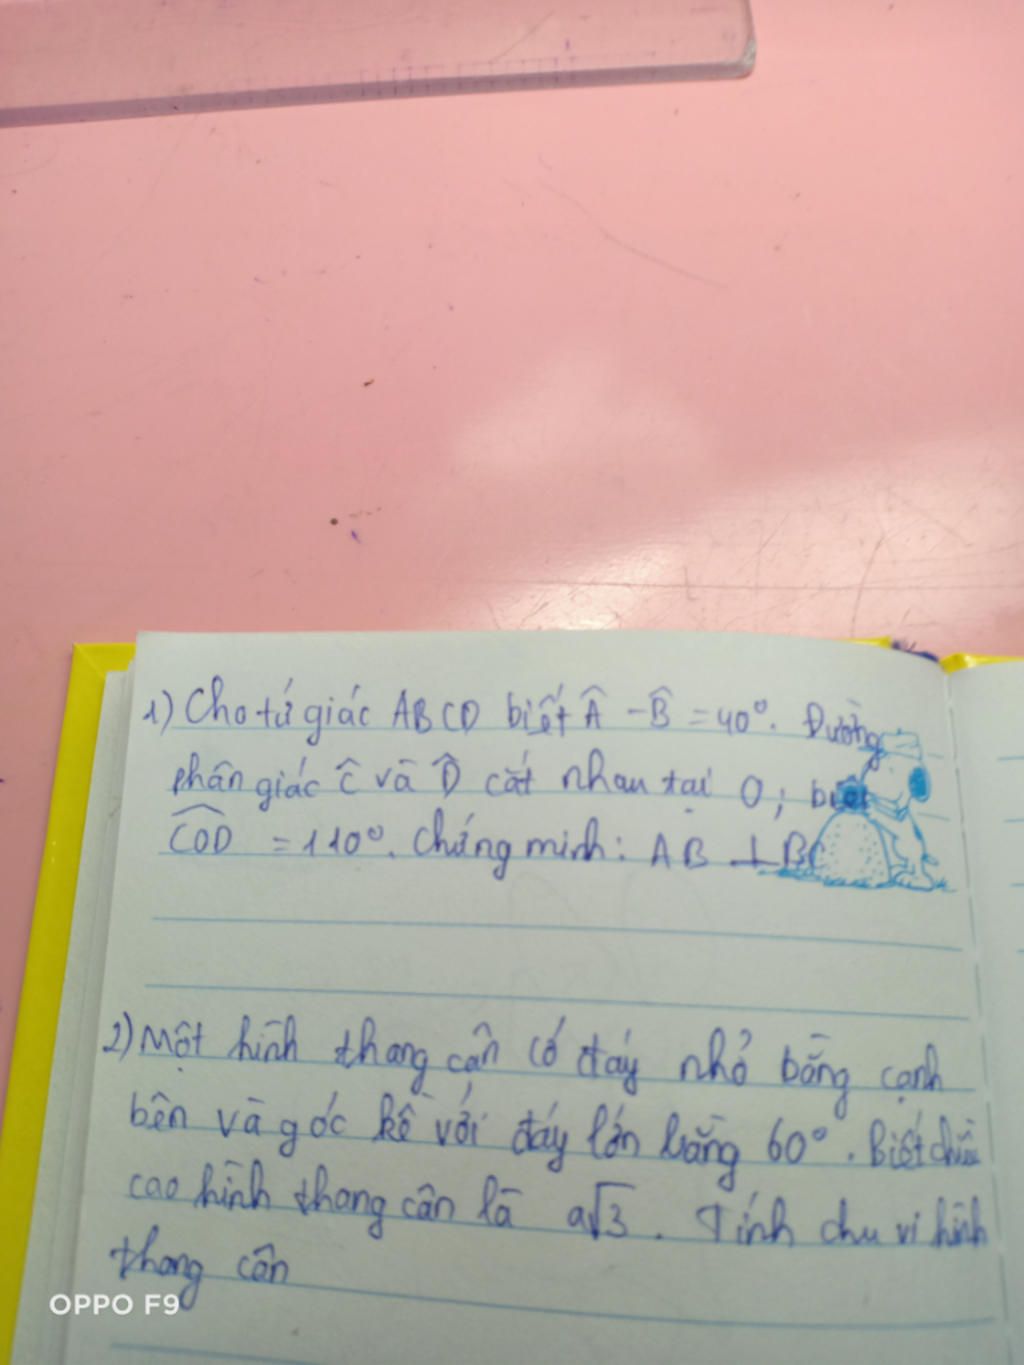 1) Cho tứ giác ABCD biết Â - B̂ = 40°. Đường
phân giác Ĉ và D̂ cắt nhau tại O; biết
COD = 110°. Chứng minh: AB ⊥ BC
2) Một hình thang cân có đáy nhỏ bằng cạnh
bên và góc kề với đáy lớn bằng 60°. Biết chiều
cao hình thang cân là a√3. Tính chu vi hình
thang cân
OPPO F9